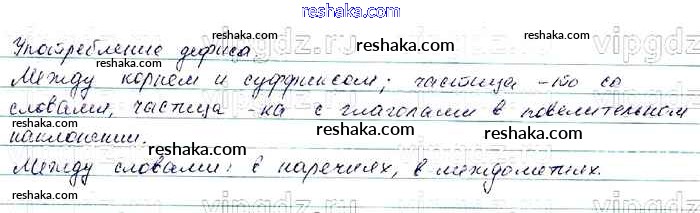 reshaka.com
Употребление дефиса.
reshaka.com reshaka.com vipgdz.ru
Между корнем и суффиксом; частица -то со
словами, частица -ка с глаголами в повелительном
наклонении.
reshaka.com reshaka.com
Между словами: в наречиях, в междометиях.
reshaka.com reshaka.com
vipgdz.ru vipgdz.ru